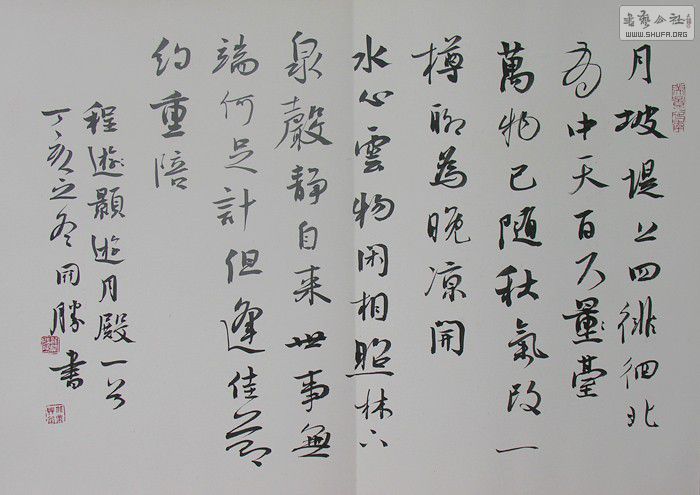 月坡堤上四徘徊北
有中天百尺量臺
萬物已随秋氣改一
樽聊為晚凉開
水心雲物閑相照林下
泉聲静自来世事無
端何足計但逢佳節
約重陪
程遊顥遊月殿一首
丁亥之冬開勝書
書藝公社
WWW.SHUFA.ORG